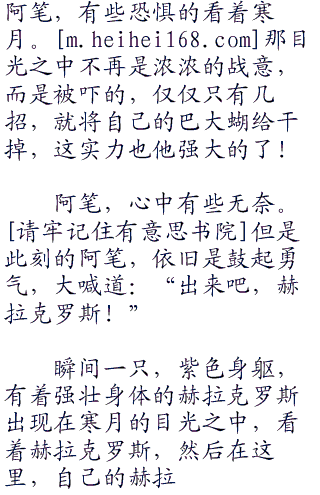 阿笔，有些恐惧的看着寒
月。[m.heihei168.com]那目
光之中不再是浓浓的战意，
而是被吓的，仅仅只有几
招，就将自己的巴大蝴给干
掉，这实力也他强大的了！
阿笔，心中有些无奈。
[请牢记住有意思书院]但是
此刻的阿笔，依旧是鼓起勇
气，大喊道：“出来吧，赫
拉克罗斯！”
瞬间一只，紫色身躯，
有着强壮身体的赫拉克罗斯
出现在寒月的目光之中，看
着赫拉克罗斯，然后在这
里，自己的赫拉